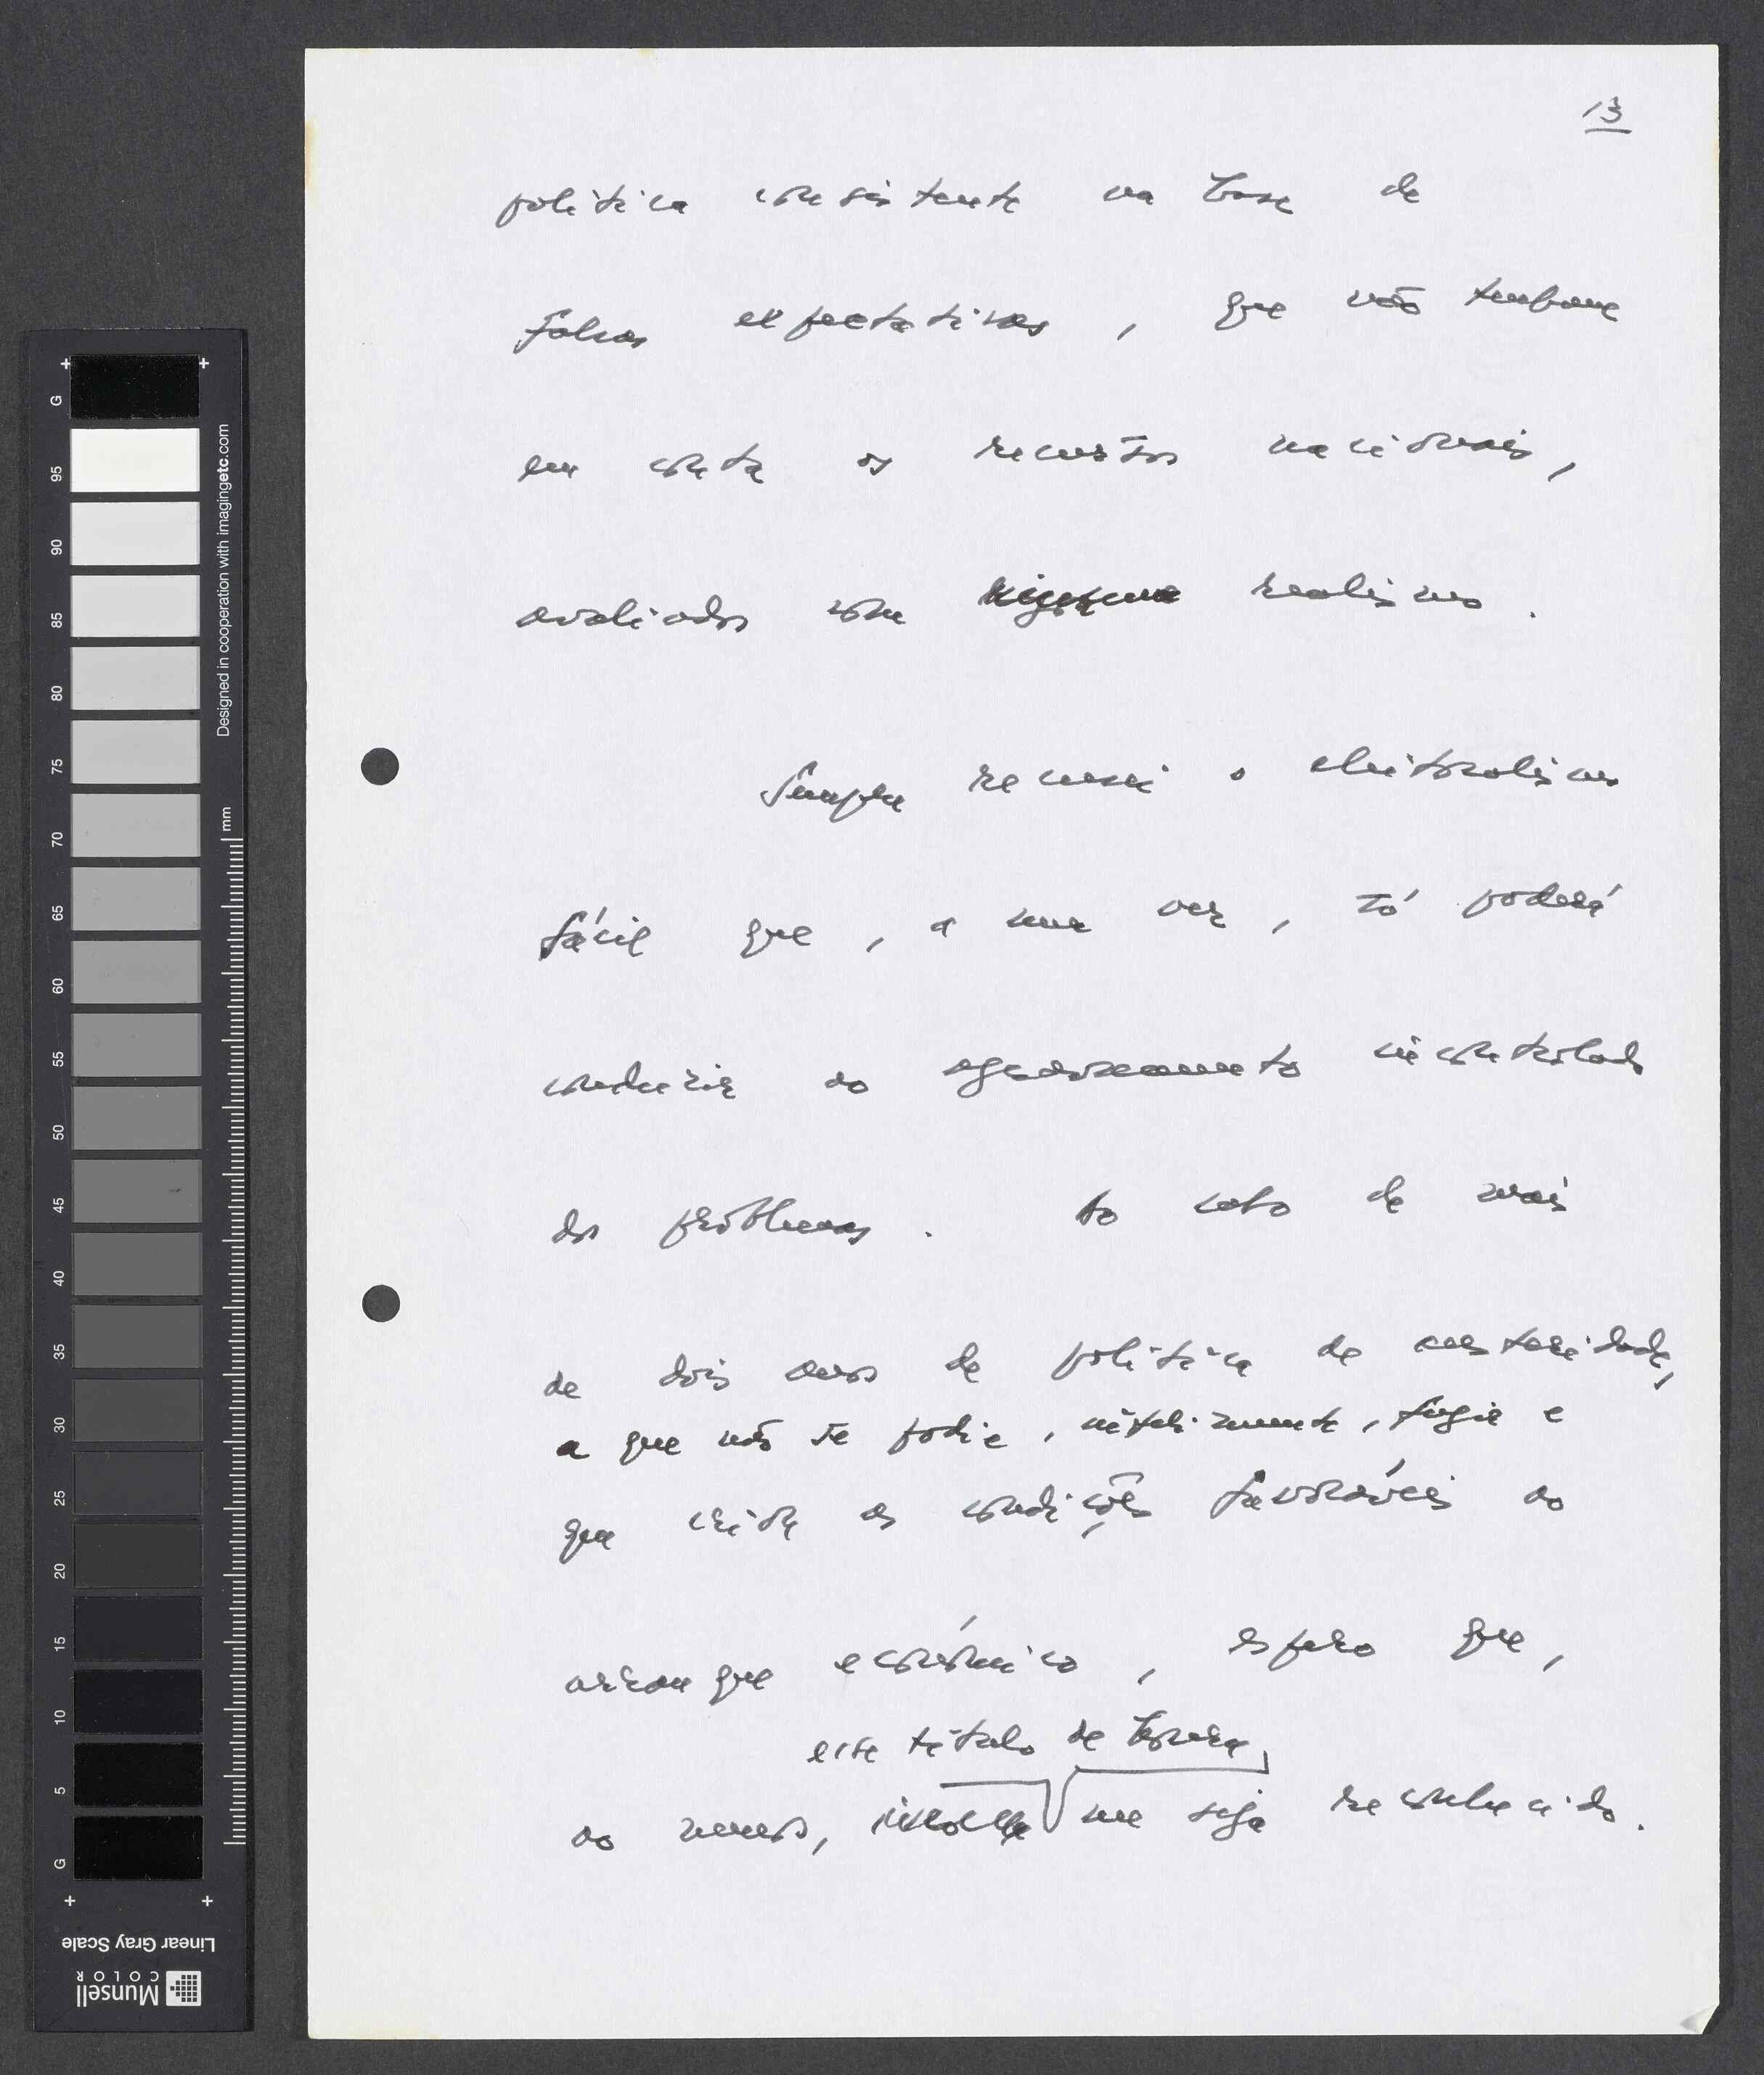 13
política consistente na base de
falsas expectativas, que não tenham
em conta os recursos nacionais,
avaliados com realismo.
Sempre recusei o eleitoralismo
fácil que, a meu ver, só poderá
conduzir ao agravamento incontrolado
dos problemas. Ao cabo de mais
de dois anos de política de austeridade,
a que não se podia, infelizmente, fugir e
que criou as condições favoráveis ao
arranque económico, espero que,
esse título de honra,
ao menos, me seja reconhecido.
G
95
90
85
80
75
70
65
60
55
50
45
40
35
30
25
20
15
10
5
G
Designed in cooperation with imagingetc.com
mm
Linear Gray Scale
Munsell
COLOR